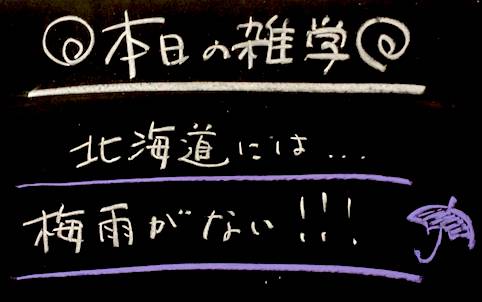 本日の雑学
北海道には...
梅雨がない!!!